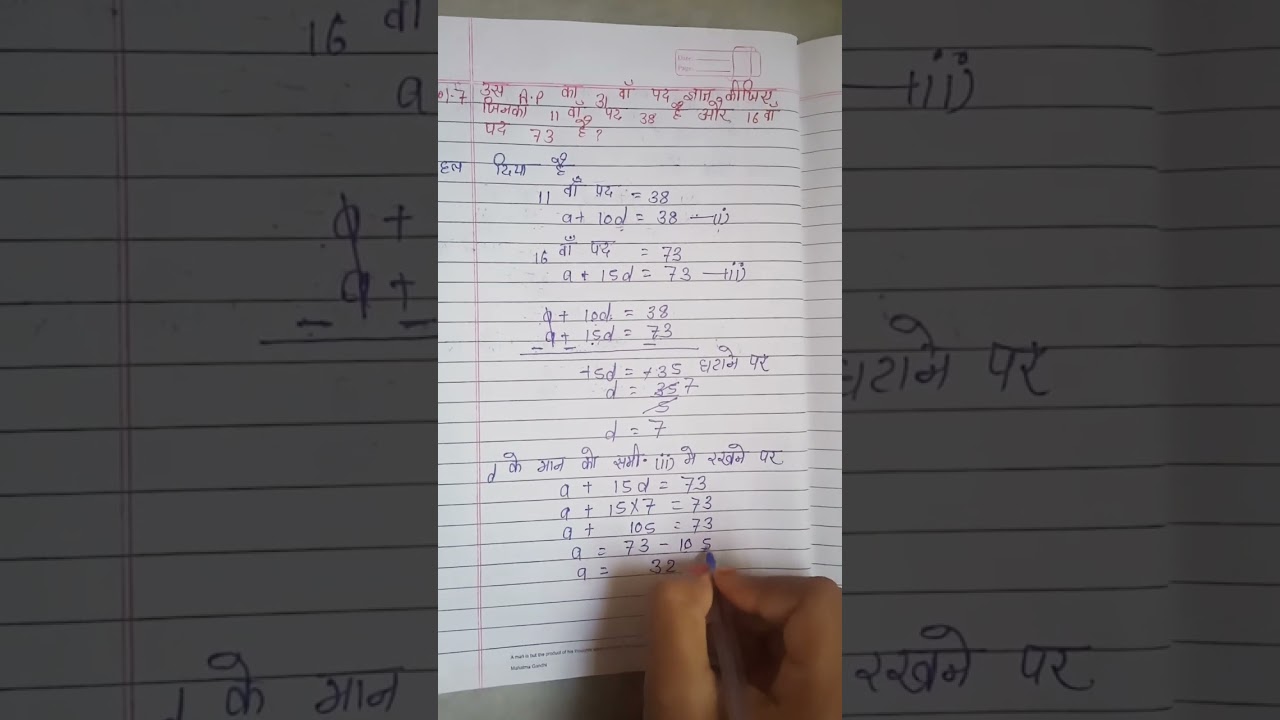 Date:
Page:
Q1.7 उस A.P का 31 वाँ पद ज्ञात कीजिए
जिनका 11 वाँ पद 38 है और 16 वाँ
पद 73 है?
हल दिया है
11 वाँ पद = 38
a + 10d = 38 —(i)
16 वाँ पद = 73
a + 15d = 73 —(ii)
a + 10d = 38
a + 15d = 73
— — —
+5d = +35 घटाने पर
d = 35 7
5
d = 7
d के मान को समी. (ii) मे रखने पर
a + 15d = 73
a + 15×7 = 73
a + 105 = 73
a = 73 - 105
a = 32
A man is but the product of his thoughts
Mahatma Gandhi
16 वाँ
a
—(ii)
a +
a +
— —
घटाने पर
d के मान
रखने पर